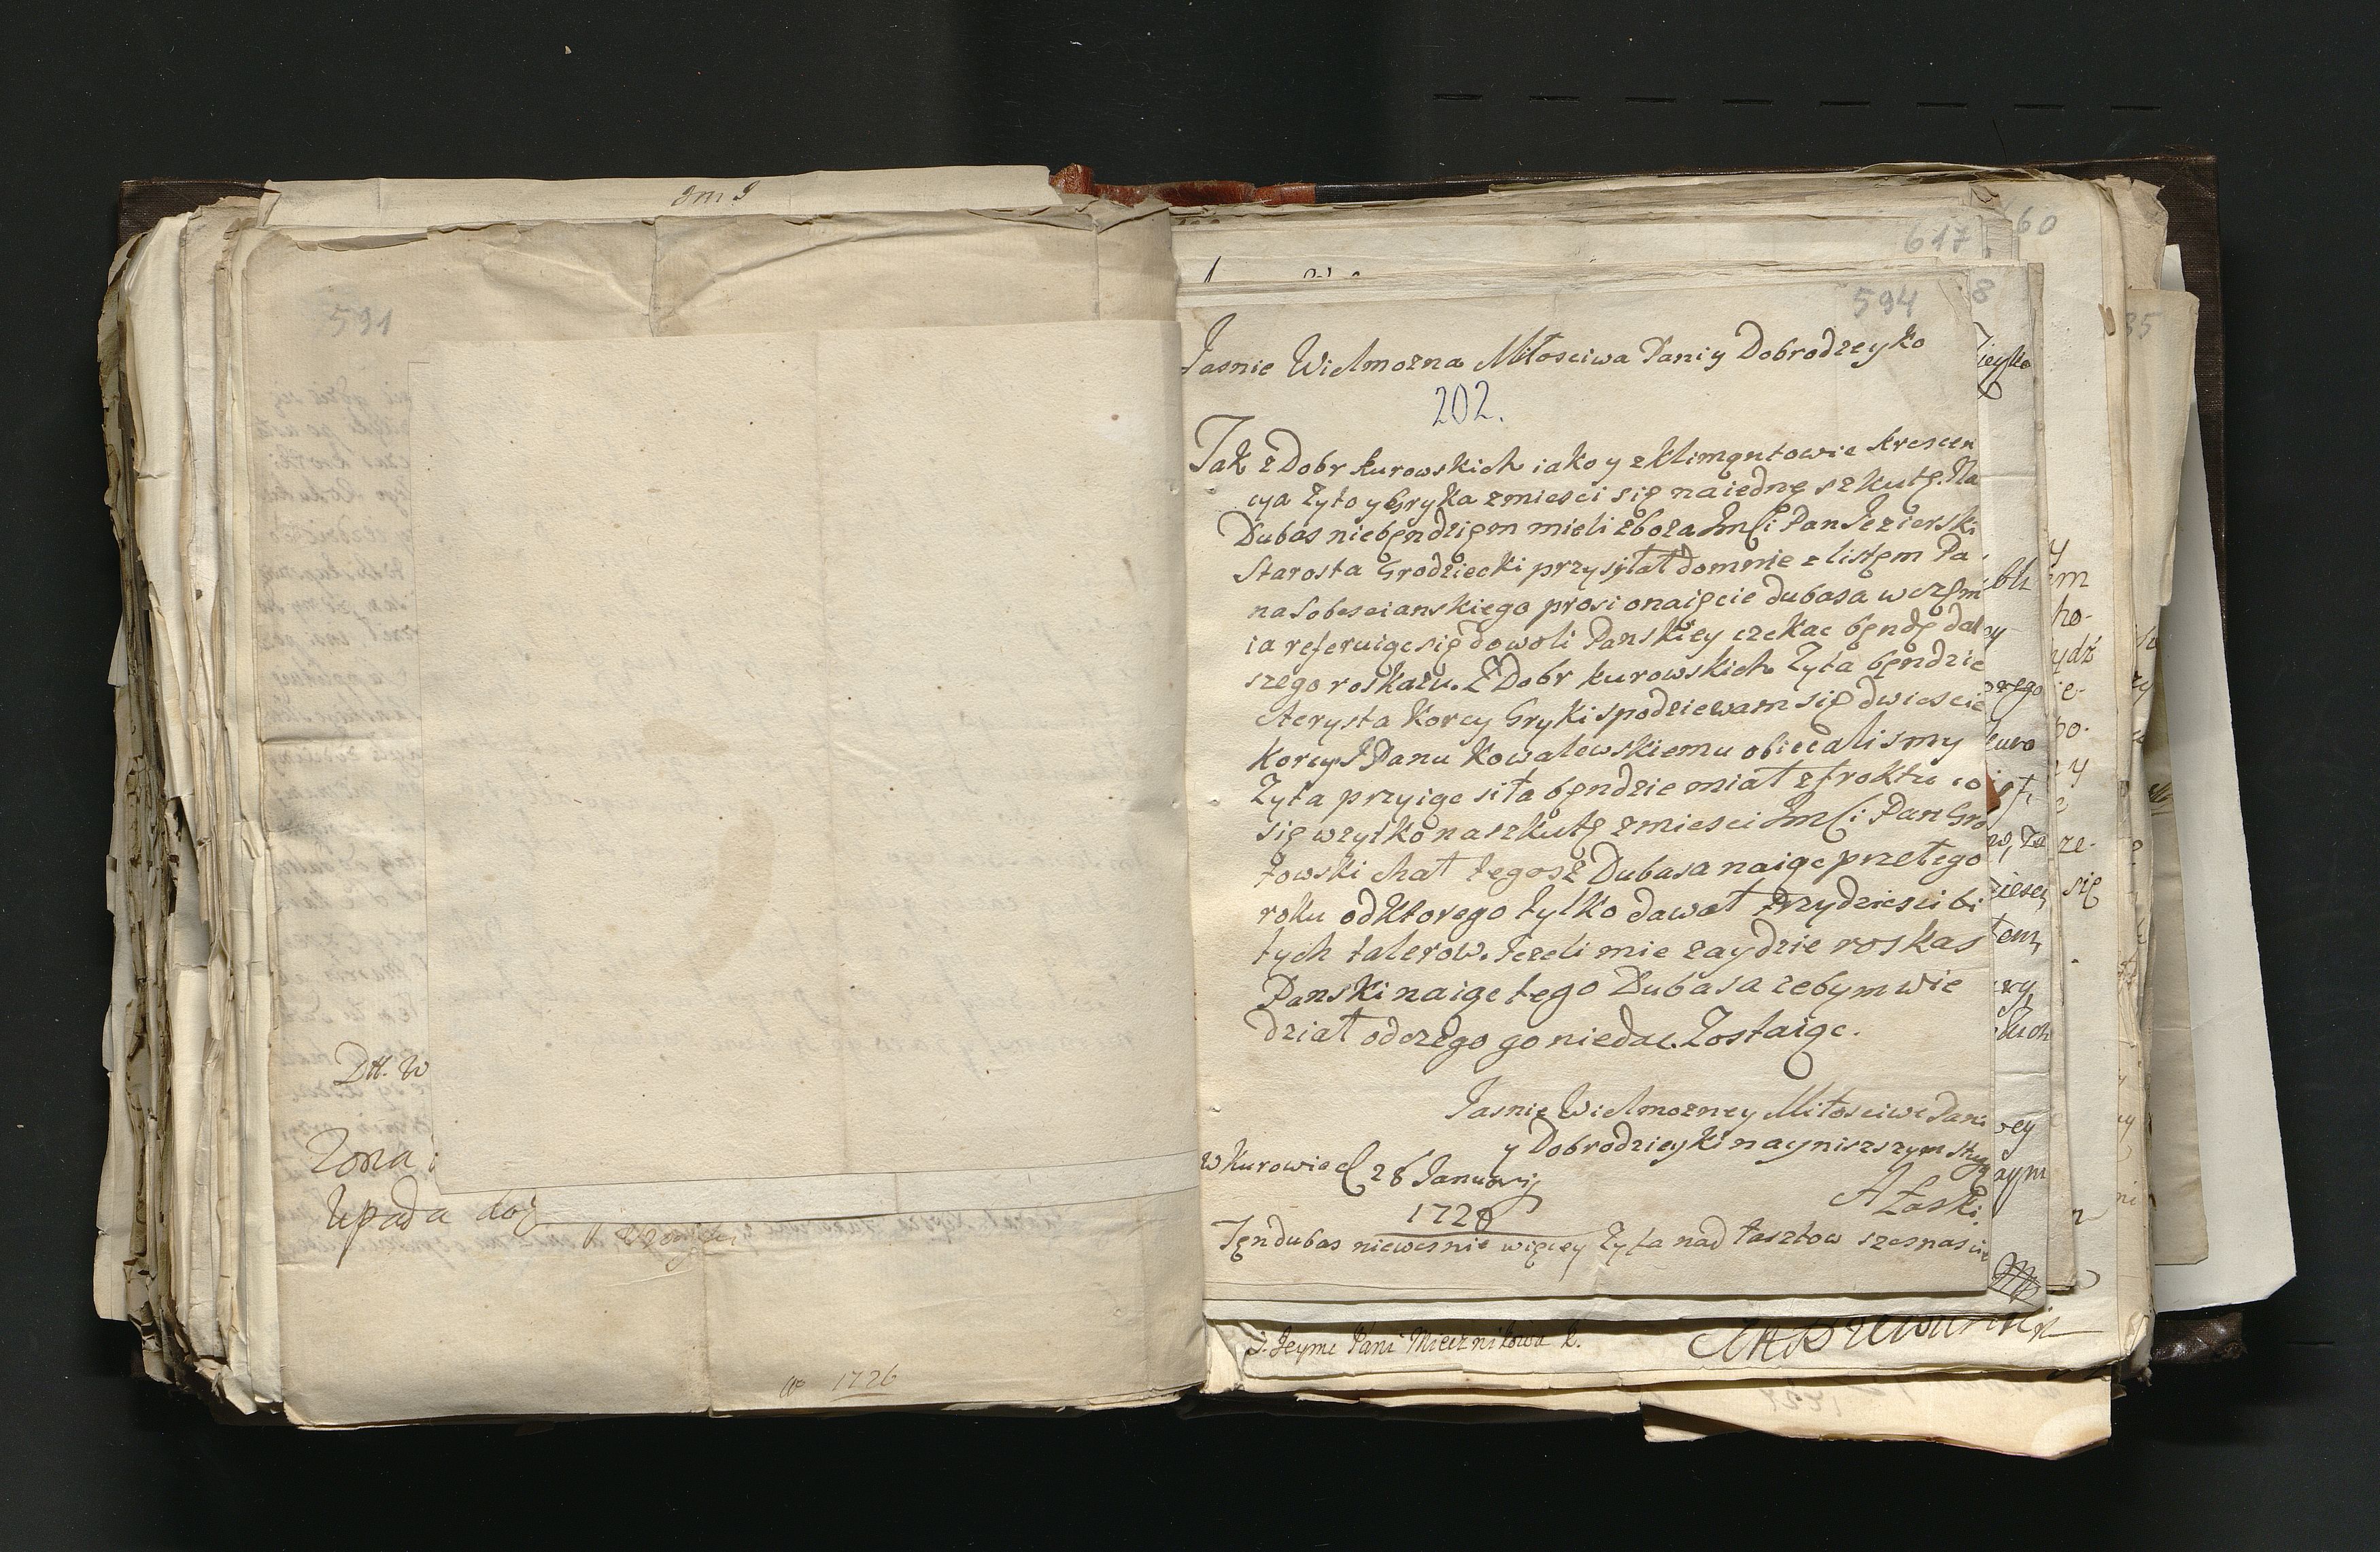 591
w 1726
594
617
60
Jasnie Wielmozna Miłosciwa Paniy Dobrodzeyko
202.
Tak z Dobr kurowskich iako y z klimętowic krescen
cya żyto y Gryka zmiesci się na iednę szkutę. Na
Dubas niebęndzięm mieli zboża Jmci Pan Jezierski
Starosta Grodziecki przysyłał domnie z listęm Pa
na Sobescianskiego prosi onaięcie dubasa w czym
ia referuiąc się dowoli Panskiey czekac będę dal
szego roskazu. Z Dobr kurowskich Zyta będzie
cterysta Korcy Gryki spodziewam się dwiescie
korcy J Panu Kowalewskiemu obiecalismy
Zyta przyiąc siła będzie miał zfroktu co
się wzysko na szkutę zmiesci Jmci Pan Gro
towski chał tegosz Dubasa naiąc przełego
roku odktorego tylko dawał trzydziesci bi
tych talerow. Jezeli mie zaydzie roskas
Panski naiąc tego Dubasa zebym wie
dział odczego go niedac. Zostaiąc.
Jasnie Wielmozney Miłosciwe Pani
y Dobrodzieyki nayniszszym sługą
w Kurowie d 28 Januarij
1720
A Łaski
Tęn dubas niewesnie więcey Zyta nad łasztow szesnascie
J. Jeymc Pani Miecznikowa K.